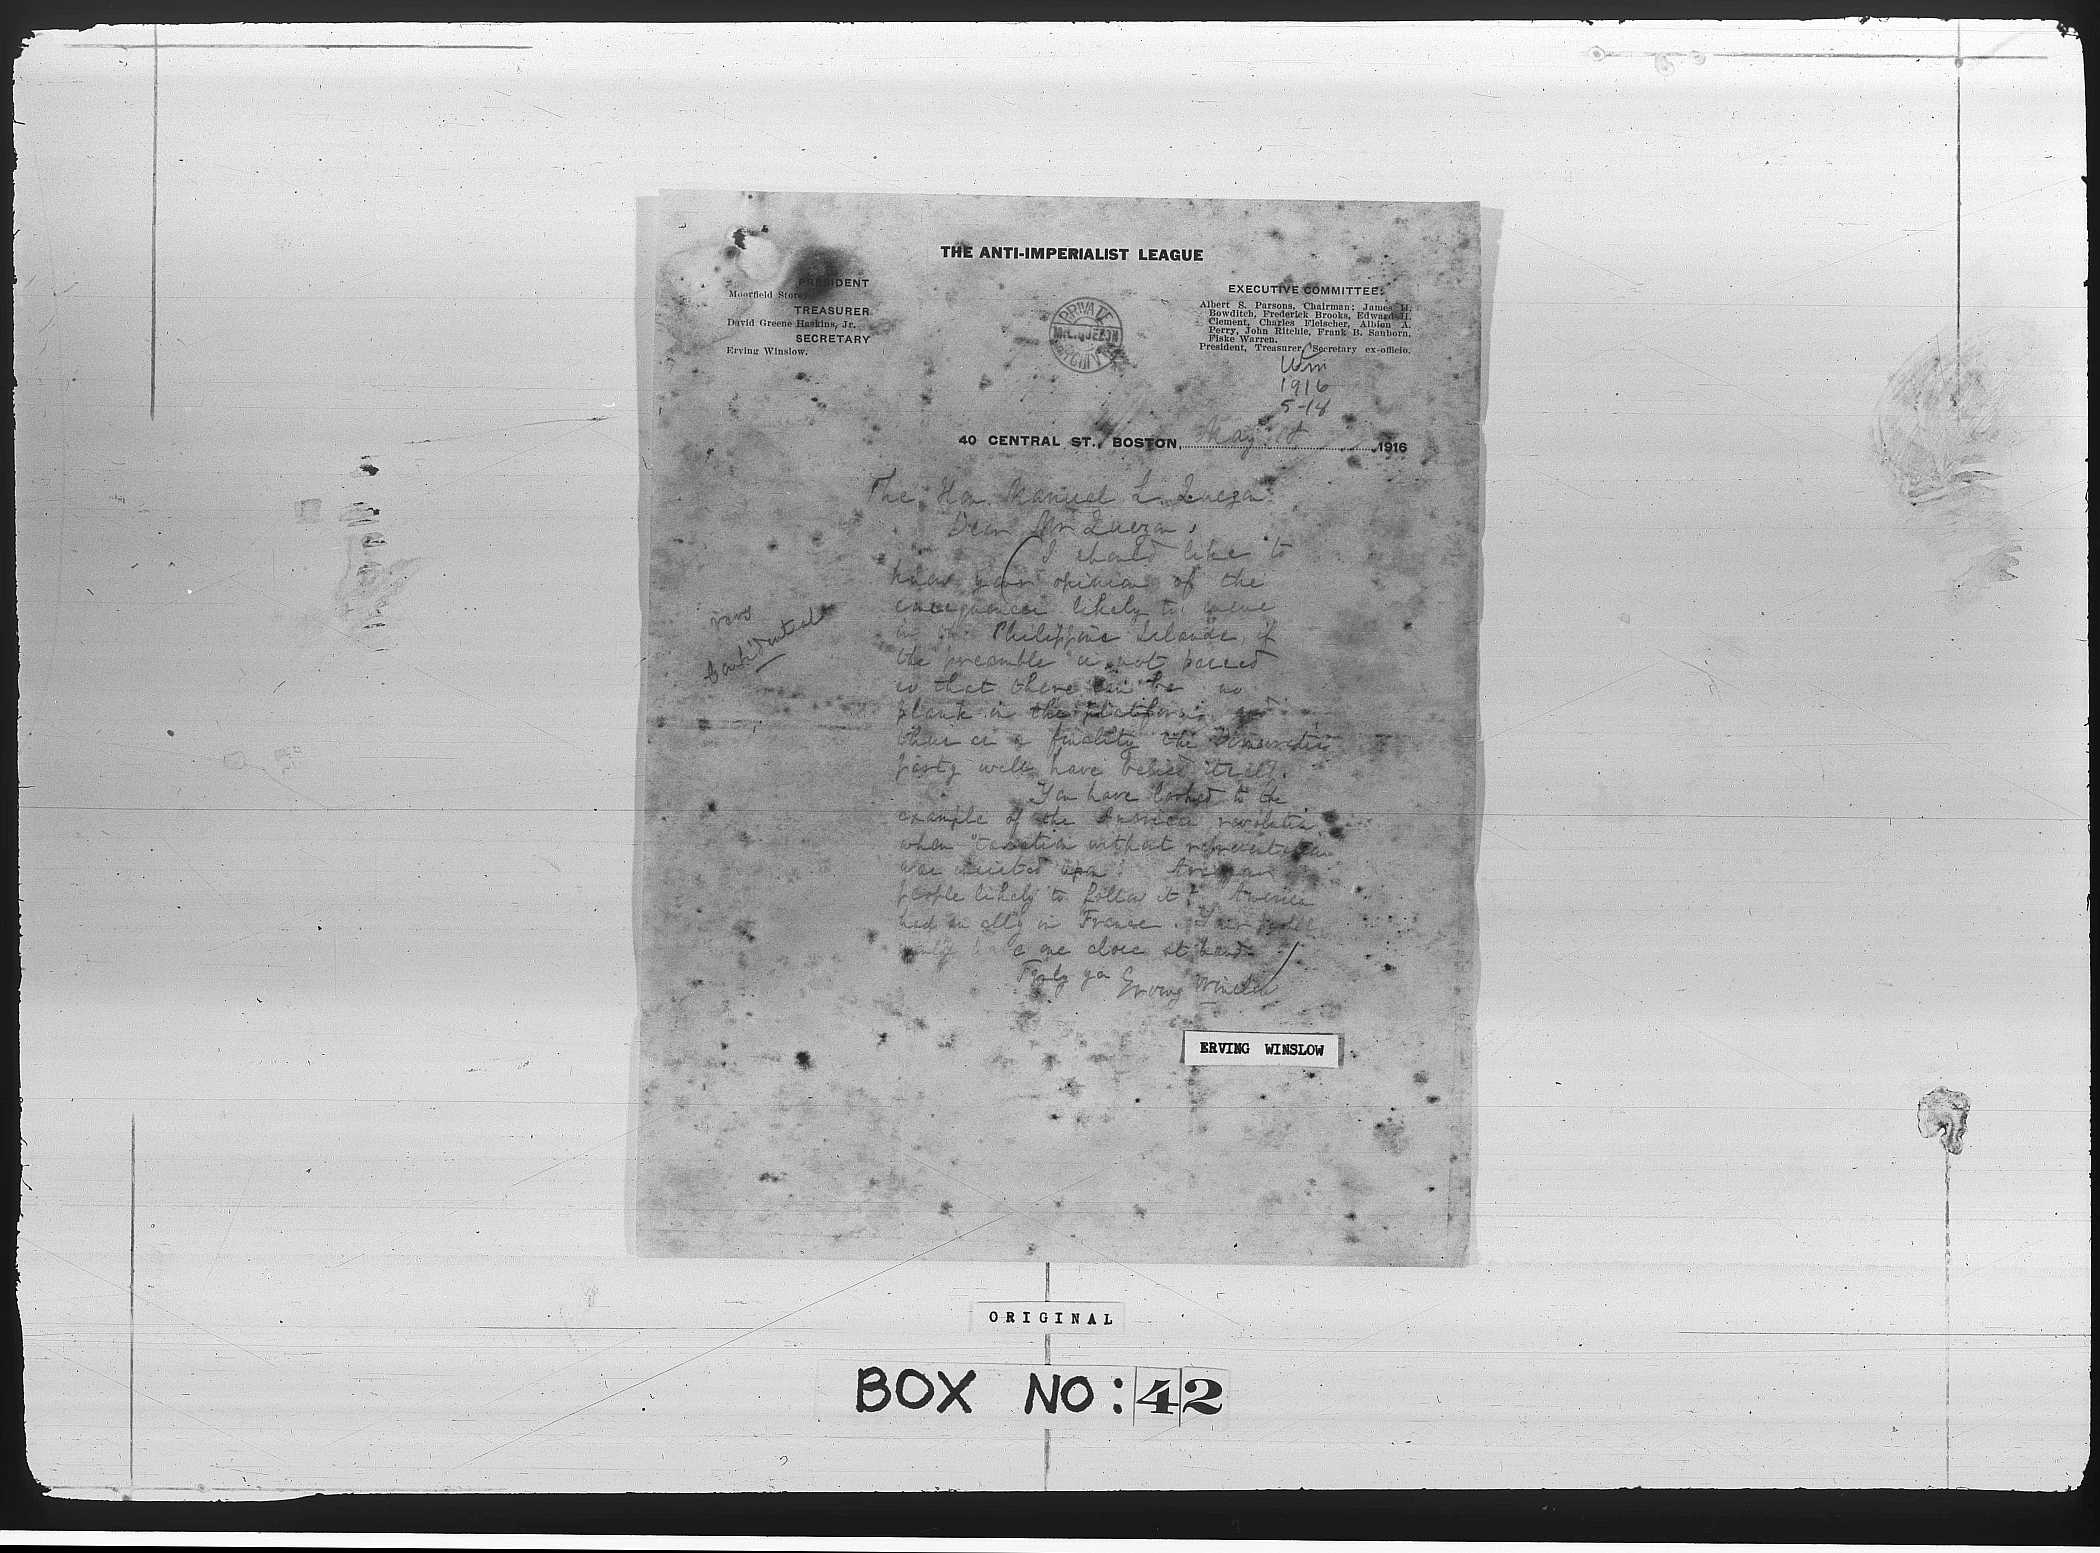 THE ANTI-IMPERIALIST LEAGUE
PRESIDENT
Moorfield Storey
TREASURER
David Greene Haskins, Jr.
SECRETARY
Erving Winslow.
PRIVATE
M.L. QUEZON
ARCHIVES
EXECUTIVE COMMITTEE:
Albert S. Parsons, Chairman; James H.
Bowditch, Frederick Brooks, Edward H.
Clement, Charles Fleischer, Albion A.
Perry, John Ritchie, Frank B. Sanborn,
Fiske Warren.
President, Treasurer, Secretary ex-officio.
1916
5-18
40 CENTRAL ST., BOSTON, May 1916
The Hon. Manuel L. Quezon
Dear Mr Quezon,
I should like to
know your opinion of the
consequences likely to ensue
in the Philippine Islands, if
the preamble is not passed
so that there can be no
plank in the platform and
thus as a finality the Democratic
party will have belied itself.
You have looked to the
example of the American revolution
when "taxation without representation
was insisted upon. Are your
people likely to follow it? America
had an ally in France. Your people
would have one close at hand
Erving Winslow
Confidential
ERVING WINSLOW
ORIGINAL
BOX NO: 42